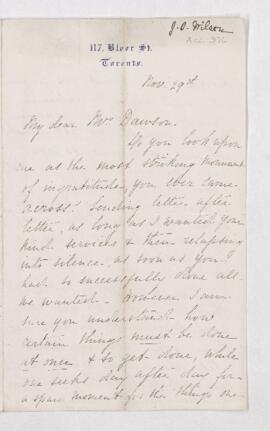 J. O. Wilson
Acc 376
117. Bloor St.
Toronto.
Nov. 29th
My dear Mrs Dawson.
Do you look upon
me as the most striking monument
of ingratitude you ever came
across? Sending letter after
letter, as long as I wanted your
kind services & then relapsing
into silence, as soon as you
had so successfully done all
we wanted. However I am
sure you understand how
certain things must be done
at once & so get done, while
one seeks day after day for
a spare moment for the things one